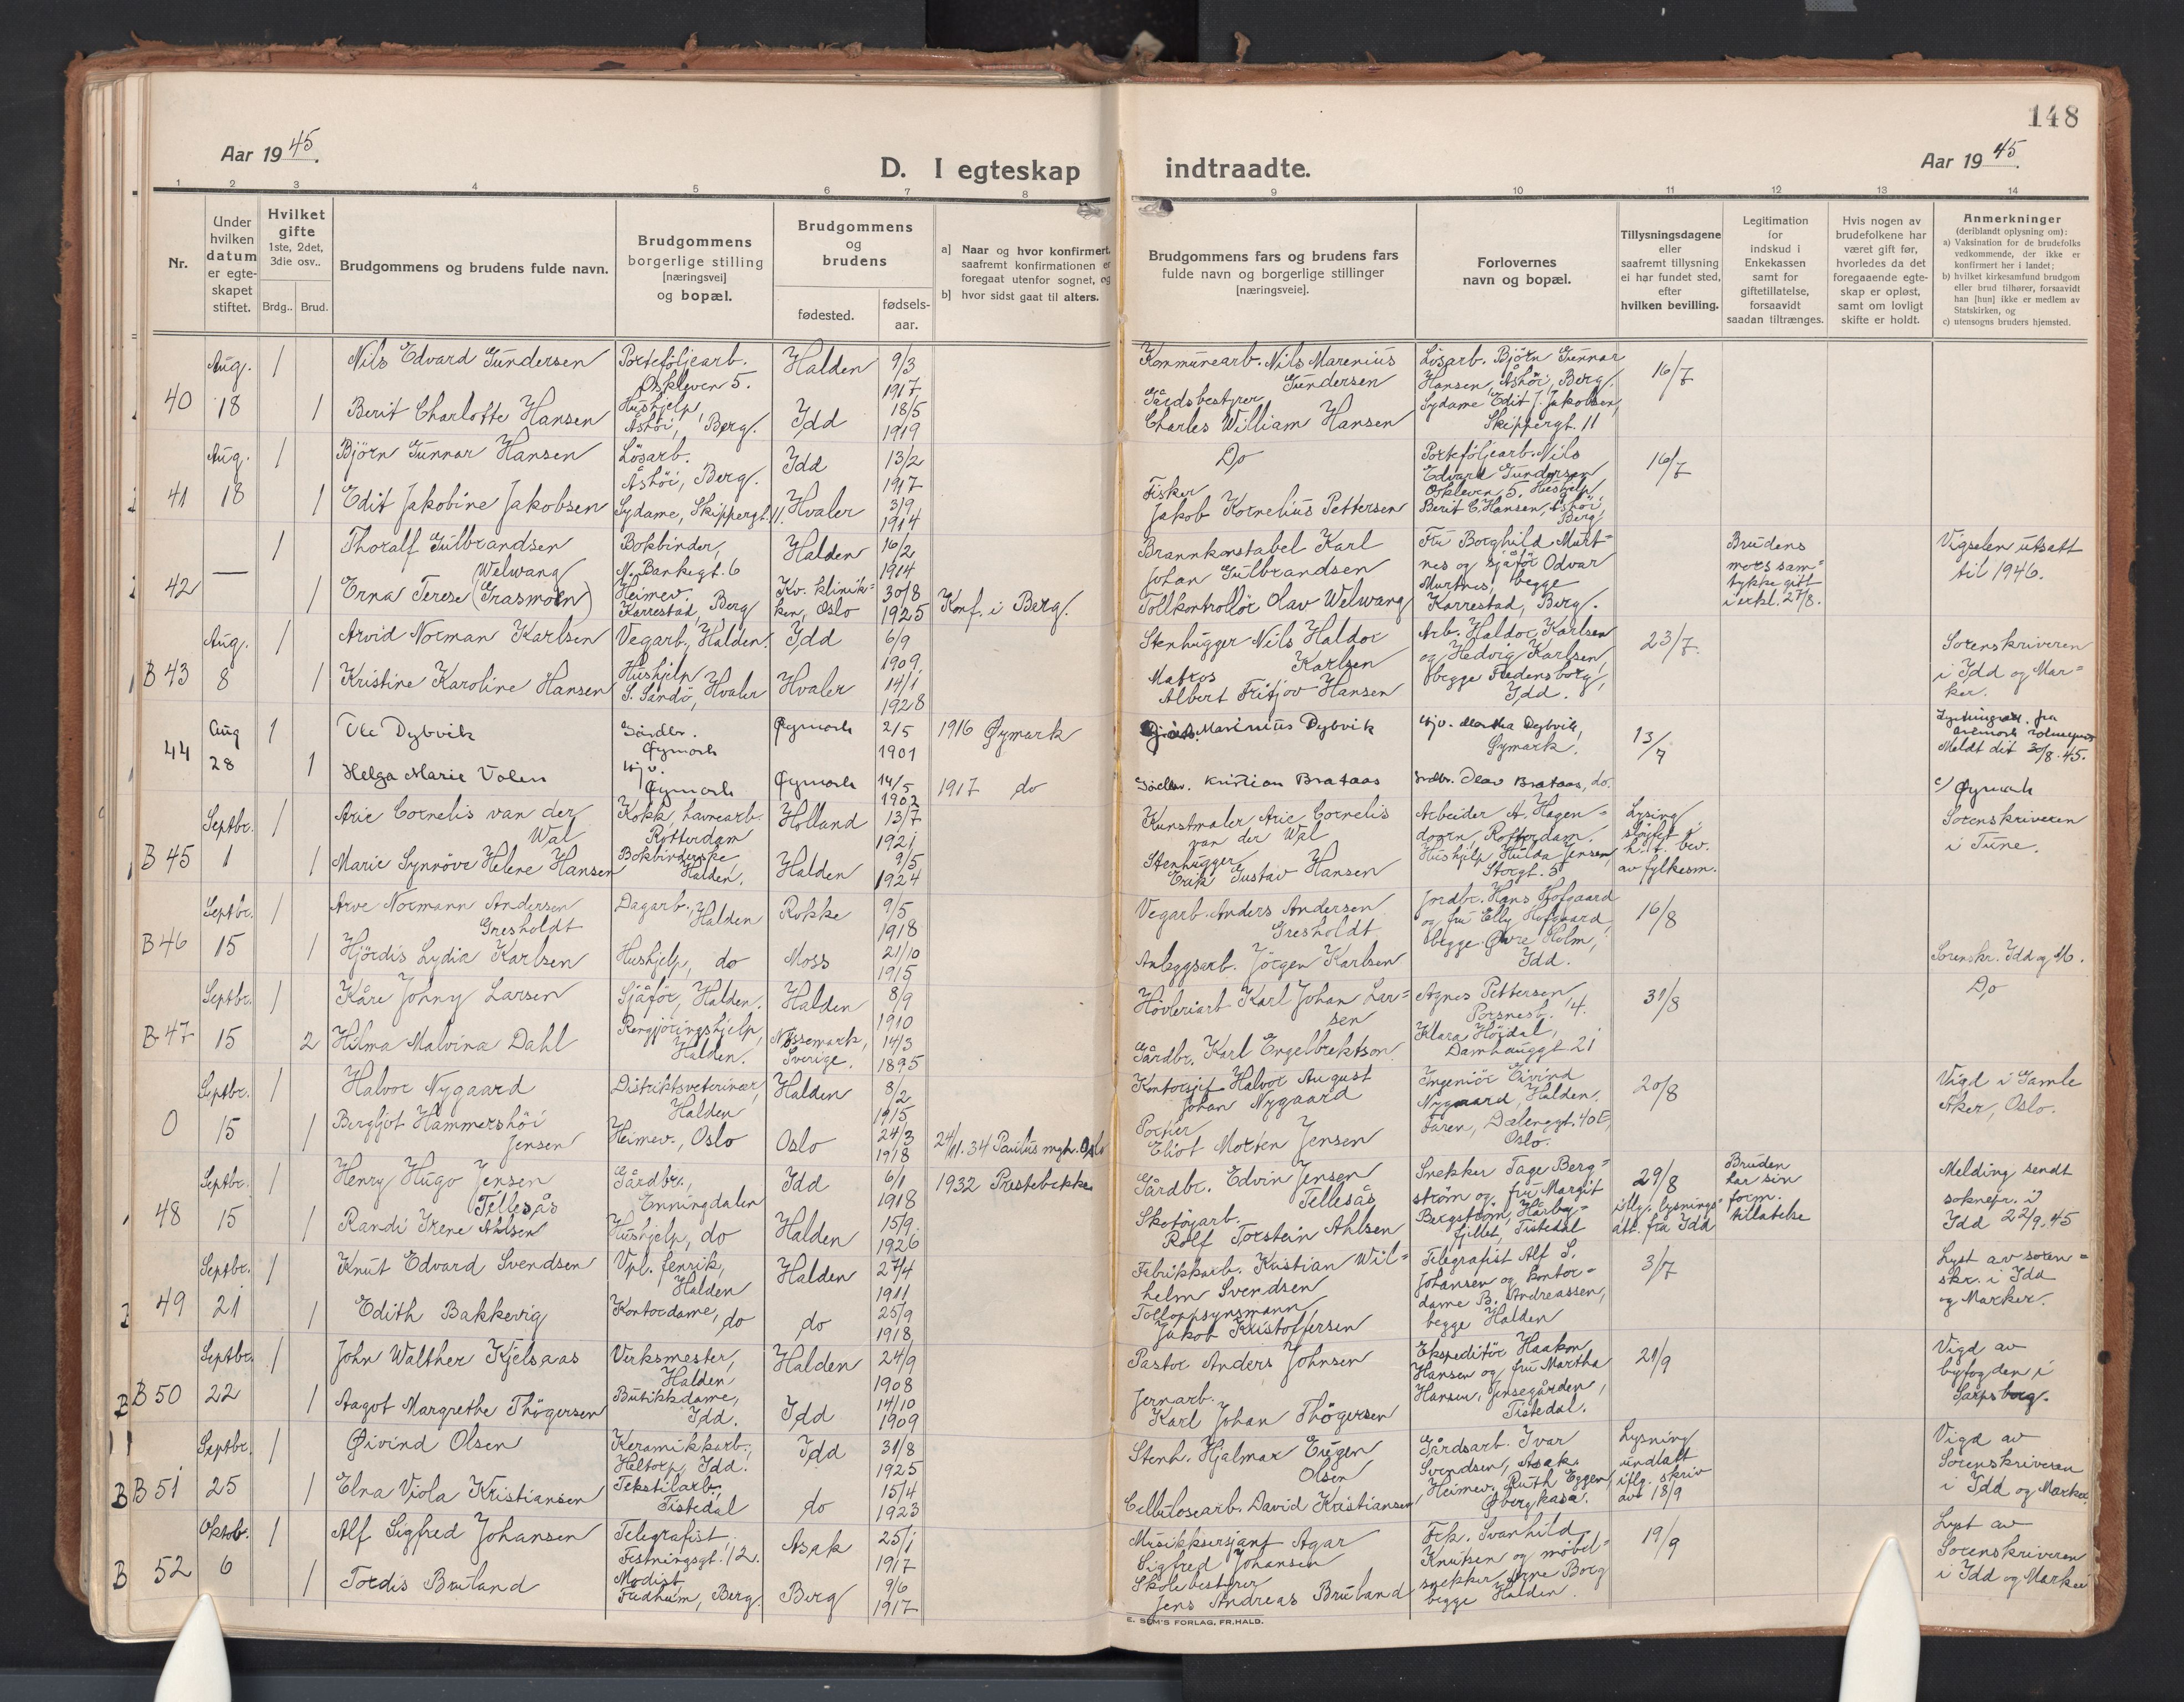 148
Aar 1945.
D. I egteskap indtraadte.
Aar 1945.
1 2 3 4 5 6 7 8 9 10 11 12 13 14
Nr.
Under hvilken datum er egte-skapet stiftet.
Hvilket gifte 1ste, 2det, 3die osv..
Brdg.. Brud.
Brudgommens og brudens fulde navn.
Brudgommens borgerlige stilling [næringsvei] og bopæl.
Brudgommens og brudens
fødested.
fødsels-aar.
a] Naar og hvor konfirmert, saafremt konfirmationen er foregaat utenfor sognet, og
b] hvor sidst gaat til alters.
Brudgommens fars og brudens fars fulde navn og borgerlige stillinger [næringsveie].
Forlovernes navn og bopæl.
Tillysningsdagene eller saafremt tillysning ei har fundet sted, efter hvilken bevilling.
Legitimation for indskud i Enkekassen samt for giftetillatelse, forsaavidt saadan tiltrænges.
Hvis nogen av brudefolkene har været gift før, hvorledes da det foregaaende egte-skap er opløst, samt om lovligt skifte er holdt.
Anmerkninger (deriblandt oplysning om):
a) Vaksination for de brudefolks vedkommende, der ikke er konfirmert her i landet;
b) hvilket kirkesamfund brudgom eller brud tilhører, forsaavidt han [hun] ikke er medlem av Statskirken, og
c) utensogns bruders hjemsted.
40 Aug. 18
1 Nils Edvard Gundersen Porteføljearb. Oskleven 5. Halden 9/3 1917 Kommunearb. Nils Marenius Gundersen Løsarb. Bjørn Gunnar Hansen, Åshöi, Berg. 16/7
1 Berit Charlotte Hansen Hushjelp, Åshöi, Berg. Idd 18/5 1919 Gårdsbestyrer Charles William Hansen Sydame Edit J. Jakobsen, Skippergt. 11
41 Aug. 18
1 Björn Gunnar Hansen Lösarb. Åshöi, Berg. Idd 13/2 1917 Do Porteföljearb. Nils Edvard Gundersen Oskleven 5. Hushjelp 16/7
1 Edit Jakobine Jakobsen Sydame, Skippergt. 11. Hvaler 3/9 1914 Fisker Jakob Kornelius Pettersen Berit C. Hansen, Åshöi, Berg.
42 —
1 Thoralf Gulbrandsen Bokbinder, N. Bankegt. 6 Halden 16/2 1914 Brannkonstabel Karl Johan Gulbrandsen Fru Borghild Murt-nes og sjåför Odvar Murtnes, begge Karrestad, Berg. Brudens mors sam-tykke gitt i erkl. 27/8. Vigselen utsatt til 1946.
1 Erna Terese Welwang (Grasmoen) Heimev. Karrestad, Berg Kv. klinik-ken, Oslo 30/8 1925 Konf. i Berg. Tollkontrollör Olav Welwang
B 43 Aug. 8
1 Arvid Norman Karlsen Vegarb., Halden. Idd 6/9 1909 Stenhugger Nils Haldor Karlsen Arb. Haldor Karlsen og Hedvig Karlsen, begge Fredensborg, Idd. 23/7. Sorenskriveren i Idd og Mar-ker.
1 Kristine Karoline Hansen Hushjelp S. Sandö, Hvaler Hvaler 14/1 1928 Matros Albert Fritjov Hansen
44 Aug 28
1 Ole Dybvik Gårdbr. Øymark Øymark 2/5 1901 1916 Øymark Marinius Dybvik Hjv. Martha Dybvik, Øymark. 13/7 Meldt dit 30/8.45.
1 Helga Marie Volen Hjv. Øymark Øymark 14/5 1902 1917 do Gårdbr. Kristian Brataas Grdbr. Olav Brataas, do. c/ Øymark
B 45 Septbr. 1
1 Arie Cornelis van der Wal Kokk, havnearb. Rotterdam Holland 13/7 1921 Kunstmaler Arie Cornelis van der Wal Arbeider A. Hagen-doorn, Rotterdam. Lysing slöyfet if. bev. av fylkesm. Sorenskriveren i Tune.
1 Marie Synnöve Helene Hansen Bokbinderske Halden. Halden 9/5 1924 Stenhugger Erik Gustav Hansen Hushjelp Hulda Jensen, Storgt. 5
B 46 Septbr. 15
1 Arve Normann Andersen Gresholdt Dagarb., Halden Rokke 9/5 1918 Vegarb. Anders Andersen Gresholdt Jordbr. Hans Hofgaard og fru Elly Hofgaard begge Øvre Holm, Idd. 16/8
1 Hjördis Lydia Karlsen Hushjelp, do Moss 21/10 1915 Anleggsarb. Jörgen Karlsen Sorenskr. Idd og M.
B 47 Septbr. 15
1 Kåre Johny Larsen Sjåför, Halden. Halden 8/9 1910 Hövleriarb. Karl Johan Lar-sen Agnes Pettersen, Porsnest. 4. 31/8 Do
2 Hilma Malvina Dahl Rengjöringshjelp, Halden. Nössemark, Sverige. 14/3 1895 Gårdbr. Karl Engelbrektson Klara Höidal, Damhauggt. 21
0 Septbr. 15
1 Halvor Nygaard Distriktsveterinær, Halden Halden 3/2 1915 Kontorsjef Halvor August Johan Nygaard Ingeniör Eivind Nygaard, Halden. 20/8 Vigd i Gamle Aker, Oslo.
1 Bergljot Hammershöi Jensen Heimev., Oslo Oslo 24/3 1918 24/11.34 Paulus mgh. Oslo Portier Eliot Morten Jensen Faren, Dælenggt. 40E, Oslo.
48 Septbr. 15
1 Henry Hugo Jensen Tellesås Gårdbr., Enningdalen Idd 6/1 1918 1932 Prestebakke Gårdbr. Edvin Jensen Tellesås Snekker Tage Berg-ström og fru Margit Bergström, Harby-fjellet, Tistedal 29/8 iflg. lysnings att. fra Idd Bruden har sin form. tillatelse Melding sendt soknepr. i Idd 22/9.45
1 Randi Irene Ahlsen Hushjelp, do Halden 15/9 1926 Skotöyarb. Rolf Torstein Ahlsen
49 Septbr. 21
1 Knut Edvard Svendsen Vpl. fenrik, Halden Halden 27/4 1911 Fabrikkarb. Kristian Wil-helm Svendsen Telegrafist Alf S. Johansen og kontor-dame B. Andreassen, begge Halden 3/7 Lyst av soren-skr. i Idd og Marker.
1 Edith Bakkevig Kontordame, do do 25/9 1918 Tolloppsynsmann, Jakob Kristoffersen
B 50 Septbr. 22
1 John Walther Kjelsaas Verksmester, Halden Halden 24/9 1908 Pastor Anders Johnsen Ekspeditör Haakon Hansen og fru Martha Hansen, Jensegården, Tistedal. 21/9 Vigd av byfogden i Sarpsborg.
1 Aagot Margrethe Thögersen Butikkdame, Idd. Idd 14/10 1909 Jernarb. Karl Johan Thögersen
B 51 Septbr. 25
1 Øivind Olsen Keramikkarb., Heltorp, Idd. Idd 31/8 1925 Stenh. Hjalmar Eugen Olsen Gårdsarb. Ivar Svendsen, Asak. Lysning undlatt iflg. skriv av 18/9 Vigd av Sorenskriveren i Idd og Marker
1 Elna Viola Kristiansen Tekstilarb., Tistedal do 15/4 1923 Cellulosearb. David Kristiansen Heimev. Ruth Eggen, Øbergkasa.
B 52 Oktob. 6
1 Alf Sigfred Johansen Telegrafist Festningsgt. 12. Asak 25/1 1917 Musikksersjant Agar Sigfred Johansen Frk. Svanhild Knutsen og möbel-snekker Arne Borg begge Halden. 19/9 Lyst av Sorenskriveren i Idd og Marker
1 Tordis Bruland Modist Fredheim, Berg. Berg 9/6 1917 Skolebestyrer Jens Andreas Bruland
E. SEM'S FORLAG, FR.HALD.